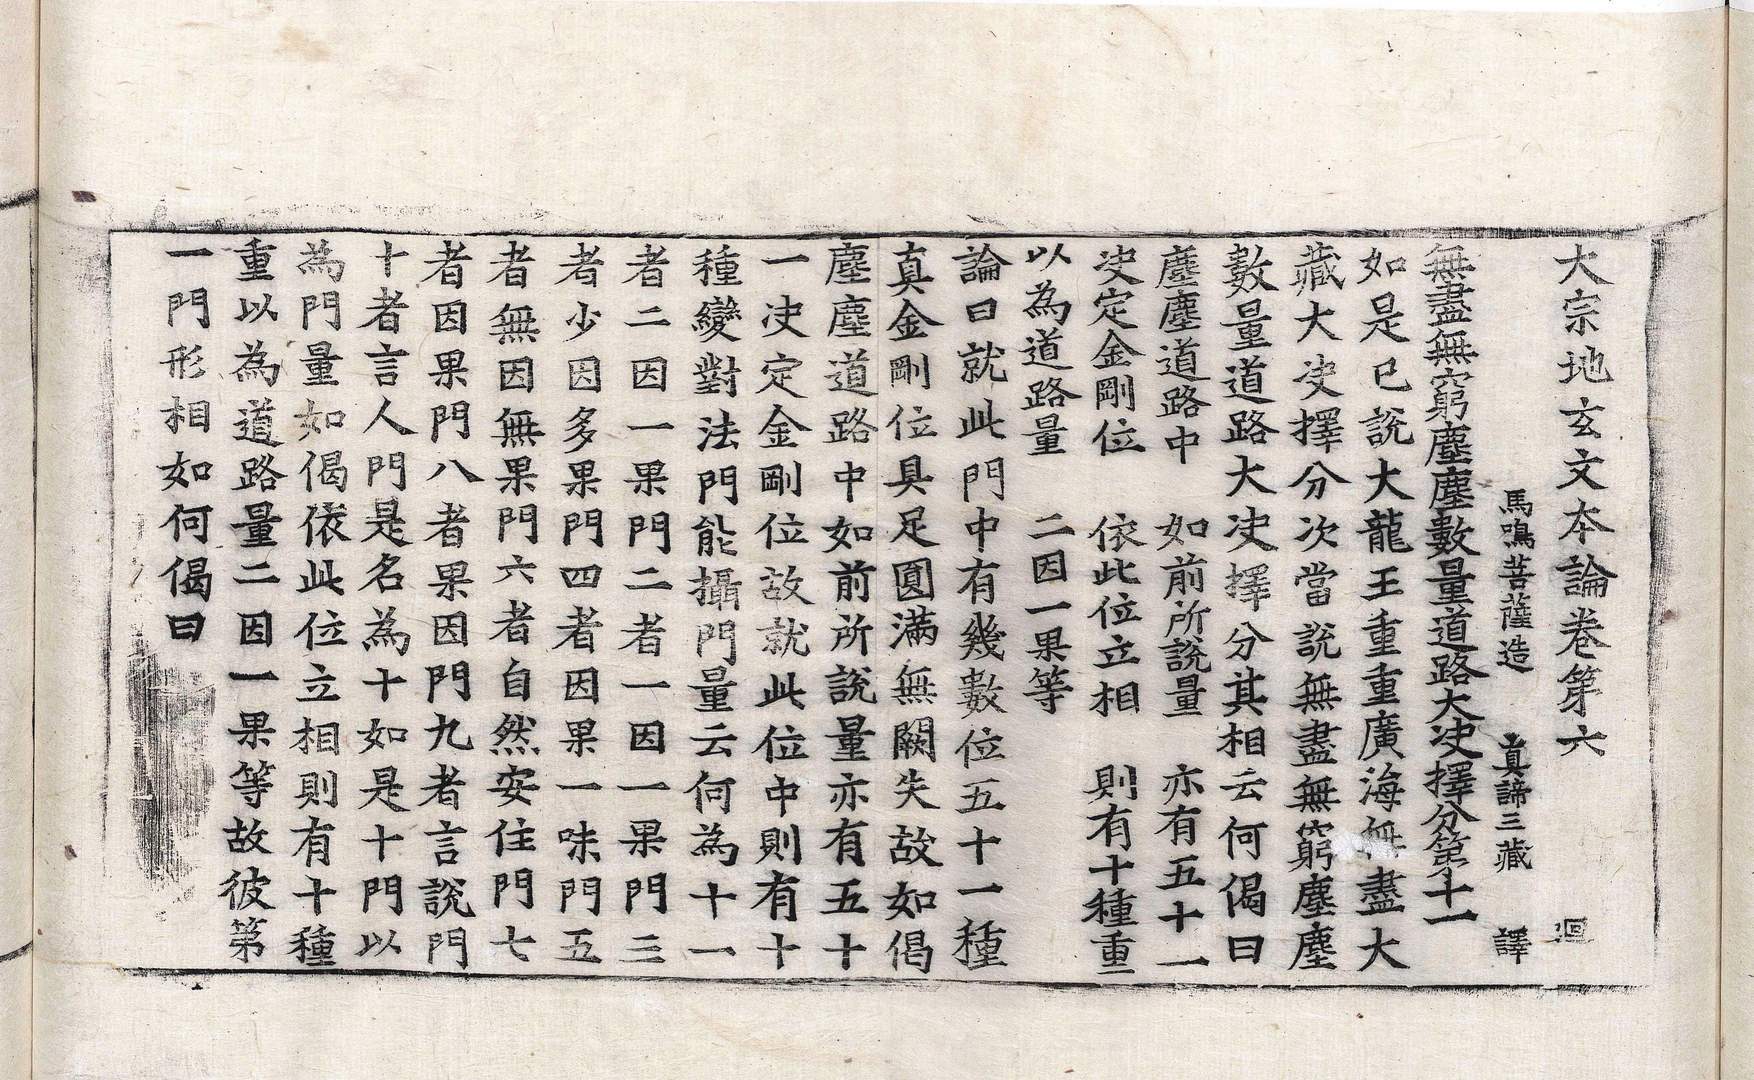 大宗地玄文本論卷第六 迴
馬鳴菩薩造 真諦三藏 譯
無盡無窮塵塵數量道路大決擇分第十一
如是已說大龍王重重廣海無盡大
藏大決擇分次當說無盡無窮塵塵
數量道路大決擇分其相云何偈曰
塵塵道路中 如前所說量 亦有五十一
決定金剛位 依此位立相 則有十種重
以為道路量 二因一果等
論曰就此門中有幾數位五十一種
真金剛位具足圓滿無闕失故如偈
塵塵道路中如前所說量亦有五十
一決定金剛位故就此位中則有十
種變對法門能攝門量云何為十一
者二因一果門二者一因一果門三
者少因多果門四者因果一味門五
者無因無果門六者自然安住門七
者因果門八者果因門九者言說門
十者言人門是名為十如是十門以
為門量如偈依此位立相則有十種
重以為道路量二因一果等故彼第
一門形相如何偈曰